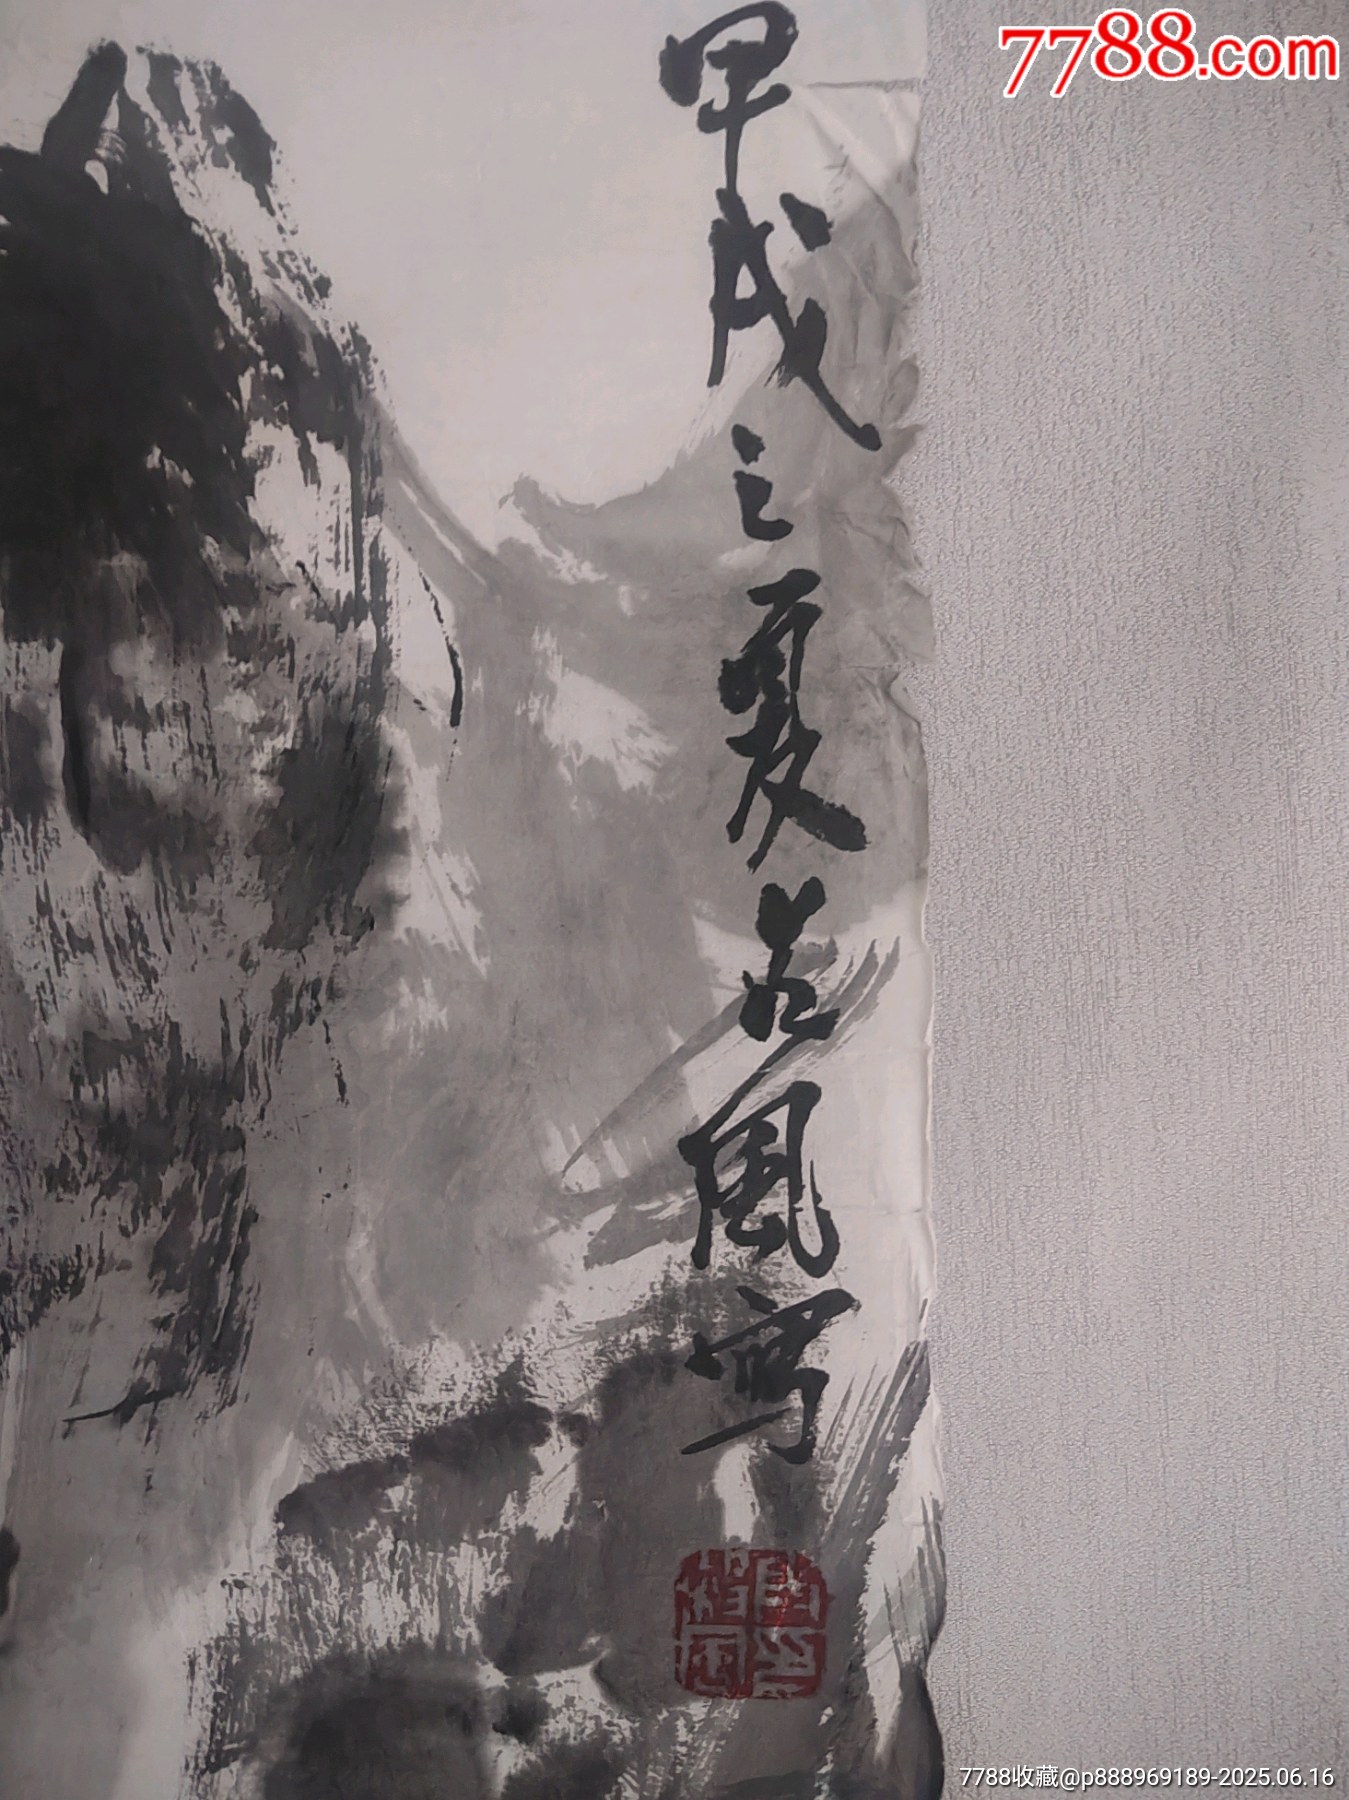 7788.com
甲戌之夏若風寫
7788收藏@p888969189-2025.06.16